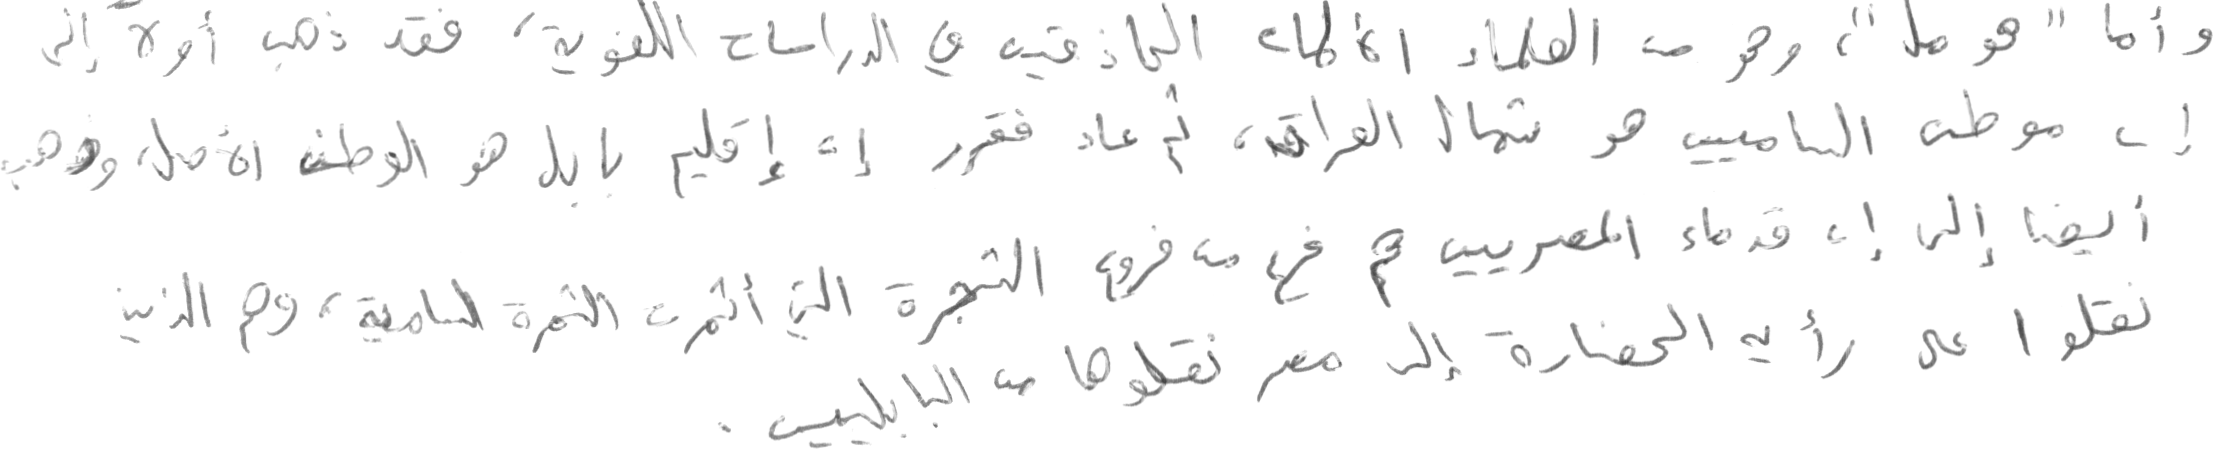 وأما "هومل"، وهو من العلماء الألمان الحاذقين في الدراسات اللغوية، فقد ذهب أولاً إلى
إن موطن الساميين هو شمال العراق، ثم عاد فقرر إن إقليم بابل هو الوطن الأصل، وذهب
أيضا إلى إن قدماء المصريين هم فرع من فروع الشجرة التي أثمرت الثمرة السامية، وهم الذين
نقلوا على رأيه الحضارة إلى مصر نقلوها من البابليين.